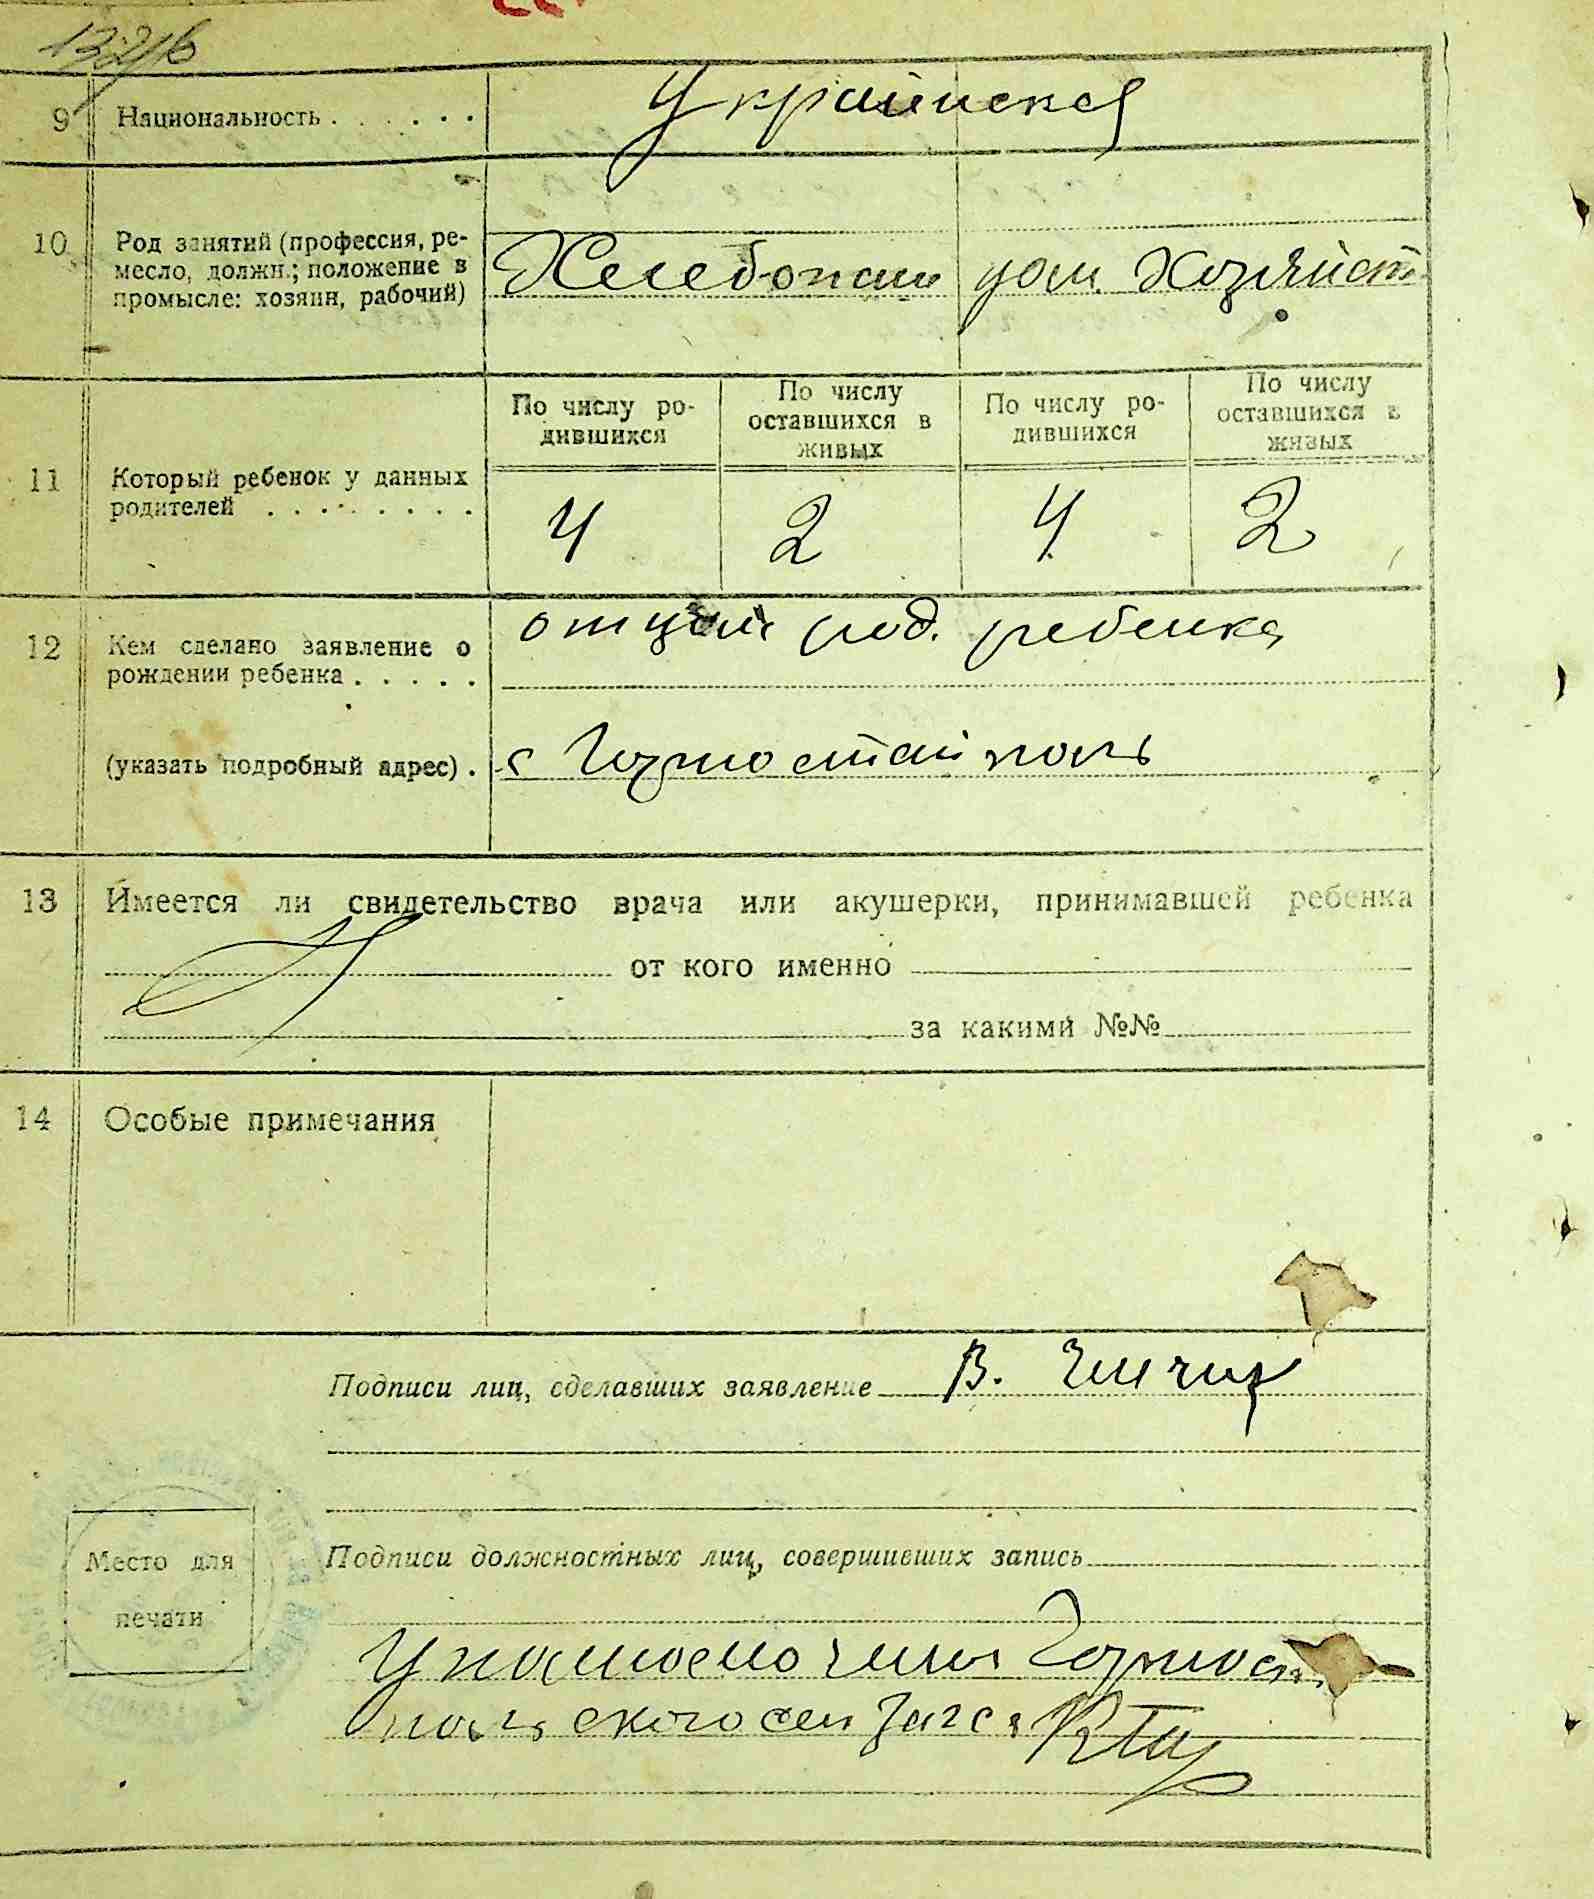 132/б
9 Национальность . . . . . .
Украинская
10 Род занятий (профессия, ре-
месло, должн.; положение в
промысле: хозяин, рабочий)
Хлебопаш дом. Хозяйст
11 Который ребенок у данных
родителей . . . . . . . .
По числу ро-
дившихся
По числу
оставшихся в
живых
По числу ро-
дившихся
По числу
оставшихся в
живых
4 2 4 2
12 Кем сделано заявление о
рождении ребенка . . . . .
отцом род. ребенка
(указать подробный адрес) .
с Горностайполь
13 Имеется ли свидетельство врача или акушерки, принимавшей ребенка
от кого именно
за какими №№
14 Особые примечания
Подписи лиц, сделавших заявление В.
Место для
печати
Подписи должностных лиц, совершивших запись
Уполномоченый Горност
польского сель Загса